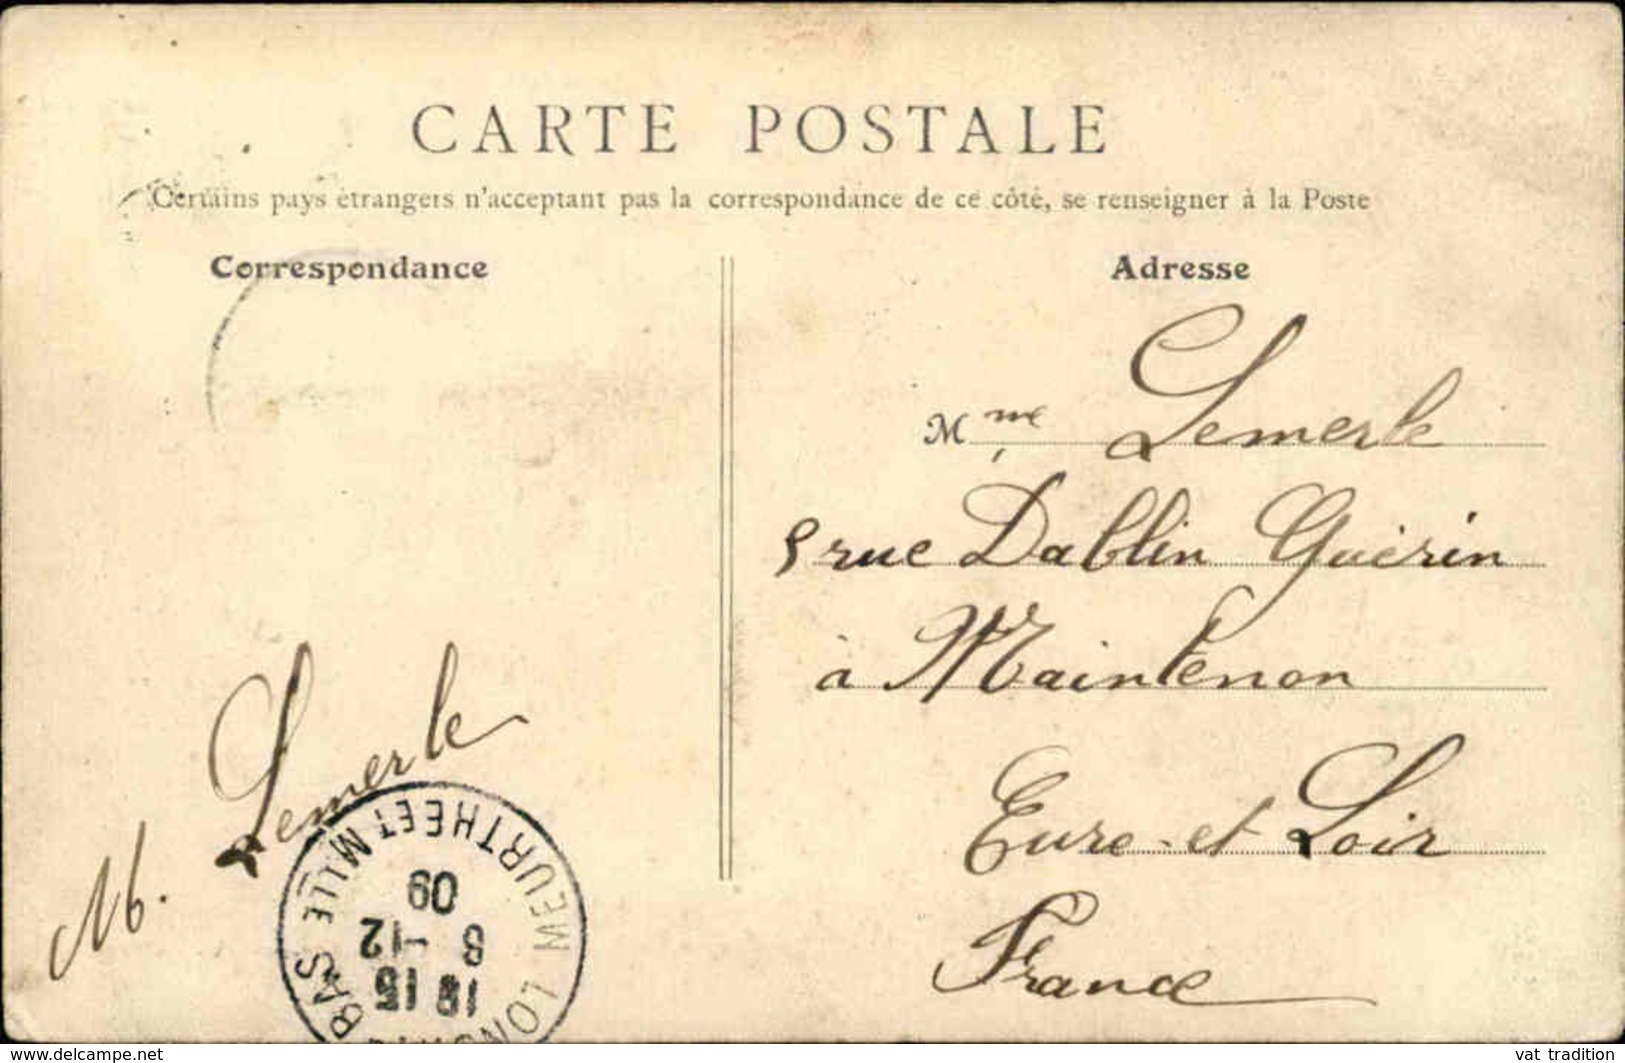 CARTE POSTALE
Certains pays étrangers n'acceptant pas la correspondance de ce côté, se renseigner à la Poste
Correspondance
Adresse
Mme Lemerle
rue Dablin Guérin
à Maintenon
Eure-et Loir
France
Lemerle
MEURTHE ET MLLE
BAS
09
8 -12
vat tradition
www.delcampe.net